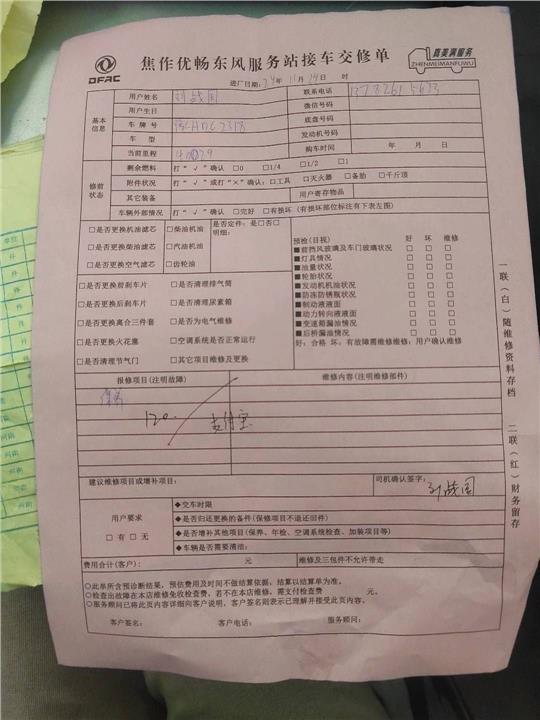 DFAC
焦作优畅东风服务站接车交修单
真美满服务
ZHENMEIMANFUWU
进厂日期:24年11月14日 时
基本信息
用户姓名 刘战国 联系电话
用户生日 微信号码
车牌号 底盘号码
车型 发动机号码
当前里程 购车时间 年 月 日
修前状态
剩余燃料 打“√”确认 □0 □1/4 □1/2 □1
附件状况 打“√”或打“×”确认:□工具 □灭火器 □备胎 □千斤顶
其它装备 用户寄存物品
车辆外部情况 打“√”确认 □完好 □有损坏(有损坏部位标注有下表左图)
□是否更换机油滤芯 □柴油机油 是否定件:是□否□
明细:
□是否更换柴油滤芯 □汽油机油
□是否更换空气滤芯 □齿轮油
□是否更换前刹车片 □是否清理排气筒
□是否更换后刹车片 □是否清理尿素箱
□是否更换离合三件套 □是否为电气维修
□是否更换火花塞 □空调系统是否正常运行
□是否清理节气门 □其它项目维修及更换
预检(目视) 好 坏 维修
■前挡风玻璃及车门玻璃状况 □ □ □
■灯具情况 □ □ □
■油量状况 □ □ □
■轮胎状况 □ □ □
■发动机机油状况 □ □ □
■防冻防锈瓶状况 □ □ □
■制动液液面 □ □ □
■动力转向液液面 □ □ □
■变速箱漏油情况 □ □ □
■后桥漏油情况 □ □ □
好:合格 坏:有故障需维修维修:用户确认维修
报修项目(注明故障) 维修内容(注明维修部件)
保养
120 支付宝
建议维修项目或增补项目: 司机确认签字:
刘战国
用户要求
□有 □无
◆交车时限
◆是否归还更换的备件(保修项目不退还旧件)
◆是否增补其他项目(保养、年检、空调系统检查、加装项目等)
◆车辆是否需要清洁:
费用合计(客户): 元 维修及三包件不允许带走
○此单所含预诊断结果,预估费用及时间不做结算依据,结算以结算单为准。
○检查出故障在本店维修免收检查费,若不在本店维修,需支付检查费 元。
○服务顾问已将此页内容详细向客户说明,客户签名则表示已理解并接受此页内容。
客户签名: 客户电话: 服务顾问:
一联(白)随维修资料存档
二联(红)财务留存